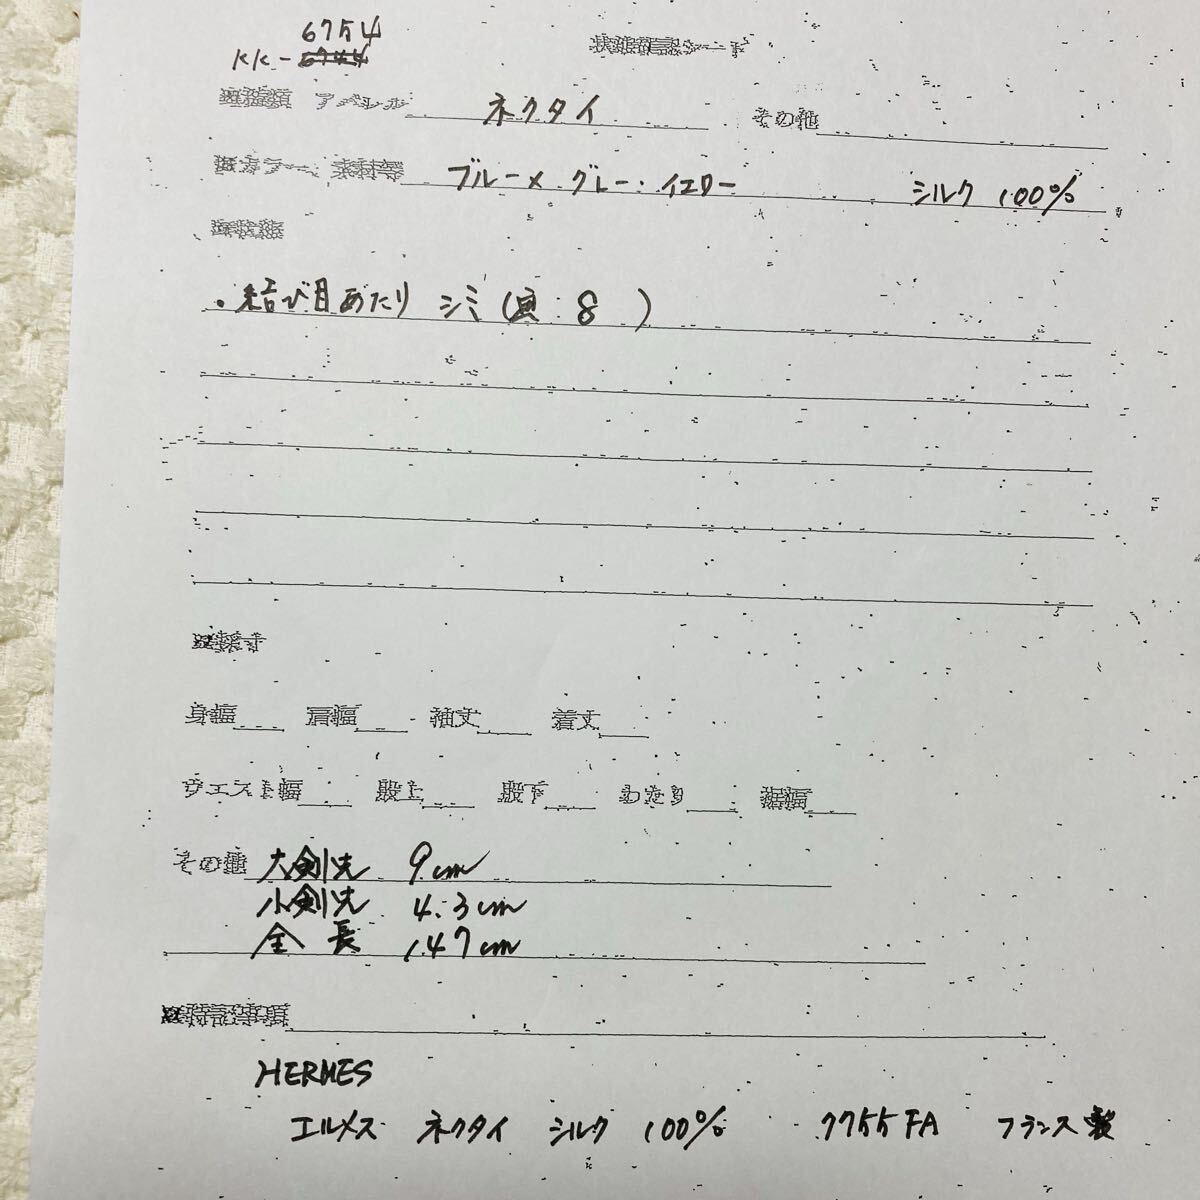 6754
KK-6744
状態確認シート
アパレル ネクタイ その他
カラー 素材等 ブルー× グレー・イエロー シルク 100%
・結び目あたり シミ( : 8 )
採寸
身幅 肩幅 袖丈 着丈
ウエスト幅 股上 股下 わたり 裾幅
その他 大剣先 9cm
小剣先 4.3cm
全 長 147cm
特記事項
HERMES
エルメス ネクタイ シルク 100% 7755FA フランス製